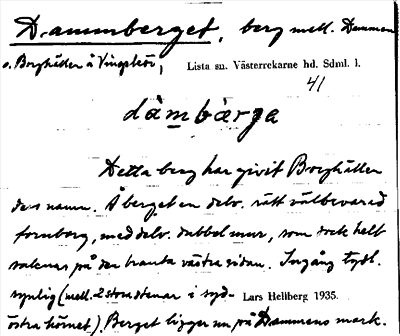 Dammberget, berg mell. Dammen
o. Borghällen å Vingsleör,
Lista sn. Västerrekarne hd. Sdml. l.
41
dàmbàrja
Detta berg har givit Borghällen
dess namn. Å berget en delv. rätt välbevarad
fornborg, med delv. dubbel mur, som dock helt
saknas på den branta västra sidan. Ingång tydl.
synlig (mell. 2 stora stenar i syd-
Lars Hellberg 1935.
östra hörnet). Berget ligger nu på Dammens mark.